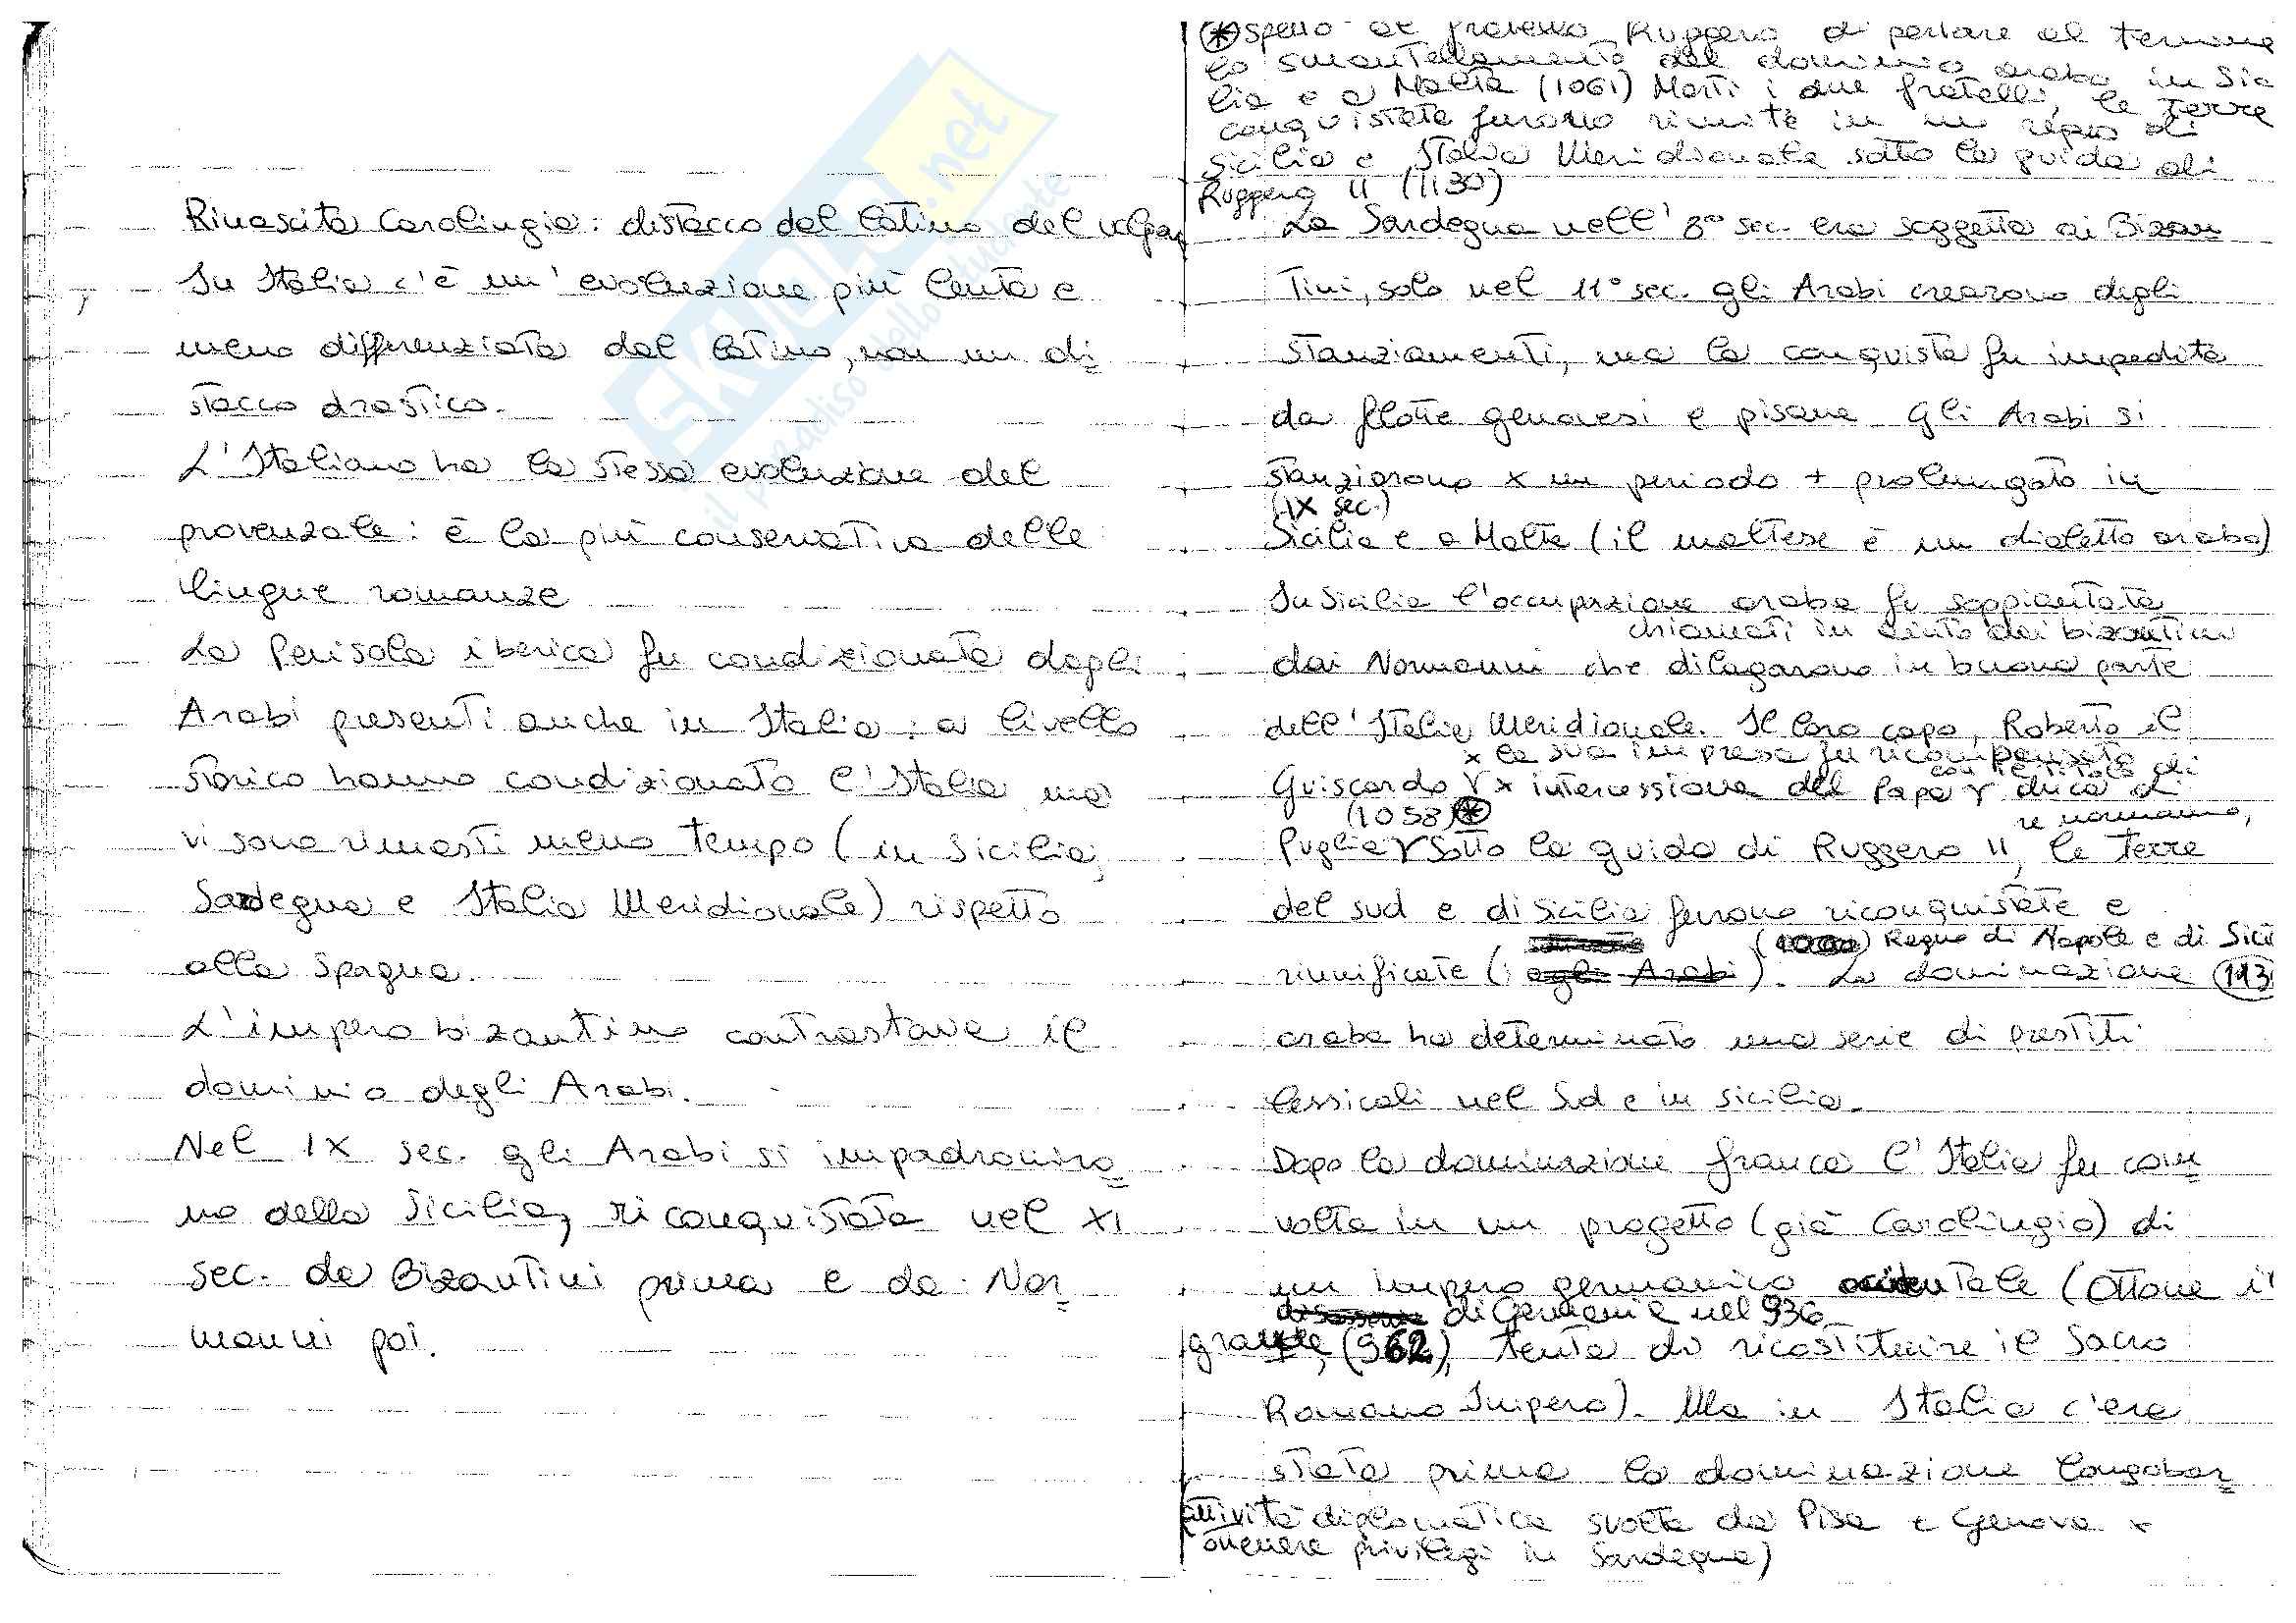 Rinascita Carolingia: distacco dal latino del volgar
In Italia c'è un'evoluzione più lenta e
meno differenziata dal latino, non un di=
stacco drastico.
L'Italiano ha la stessa evoluzione del
provenzale: è la più conservativa delle
lingue romanze
La Penisola iberica fu condizionata dagli
Arabi presenti anche in Italia: a livello
storico hanno condizionato l'Italia ma
vi sono rimasti meno tempo (in Sicilia,
Sardegna e Italia Meridionale) rispetto
alla Spagna.
L'impero bizantino contrastava il
dominio degli Arabi.
Nel IX sec. gli Arabi si impadroniro=
no della Sicilia, riconquistata nel XI
sec. da Bizantini prima e da Nor=
manni poi.
spettò al fratello Ruggero di portare al termine
lo smantellamento del dominio arabo in Sic
lia e a Malta (1061) Morti i due fratelli, le terre
conquistate furono riunite in un regno di
Sicilia e Italia Meridionale sotto la guida di
Ruggero II (1130)
La Sardegna nell'8° sec. era soggetta ai Bizan=
tini, solo nel 11° sec. gli Arabi crearono degli
stanziamenti, ma la conquista fu impedita
da flotte genovesi e pisane gli Arabi si
stanziarono x un periodo + prolungato in
(IX sec.)
Sicilia e a Malta (il maltese è un dialetto arabo)
In Sicilia l'occupazione araba fu soppiantata
chiamati in aiuto dai bizantini
dai Normanni che dilagarono in buona parte
dell'Italia Meridionale. Il loro capo, Roberto il
x la sua impresa fu ricompensato
con il titolo di
Guiscardo x intercessione del Papa duca di
(1058)
re normanno,
Puglia sotto la guida di Ruggero II, le terre
del sud e di Sicilia furono riconquistate e
Regno di Napoli e di Sici
riunificate (agli Arabi). La dominazione 113
araba ha determinato una serie di prestiti
lessicali nel Sud e in Sicilia.
Dopo la dominazione franca l'Italia fu coin=
volta in un progetto (già Carolingio) di
un impero germanico occidentale (Ottone i
di Germania nel 936
grande, (962), tenta di ricostituire il Sacro
Romano Impero). Ma in Italia c'era
stata prima la dominazione longobar=
(attività diplomatica svolta da Pisa e Genova x
ottenere privilegi in Sardegna)
SKUOLA.net
il paradiso dello studente